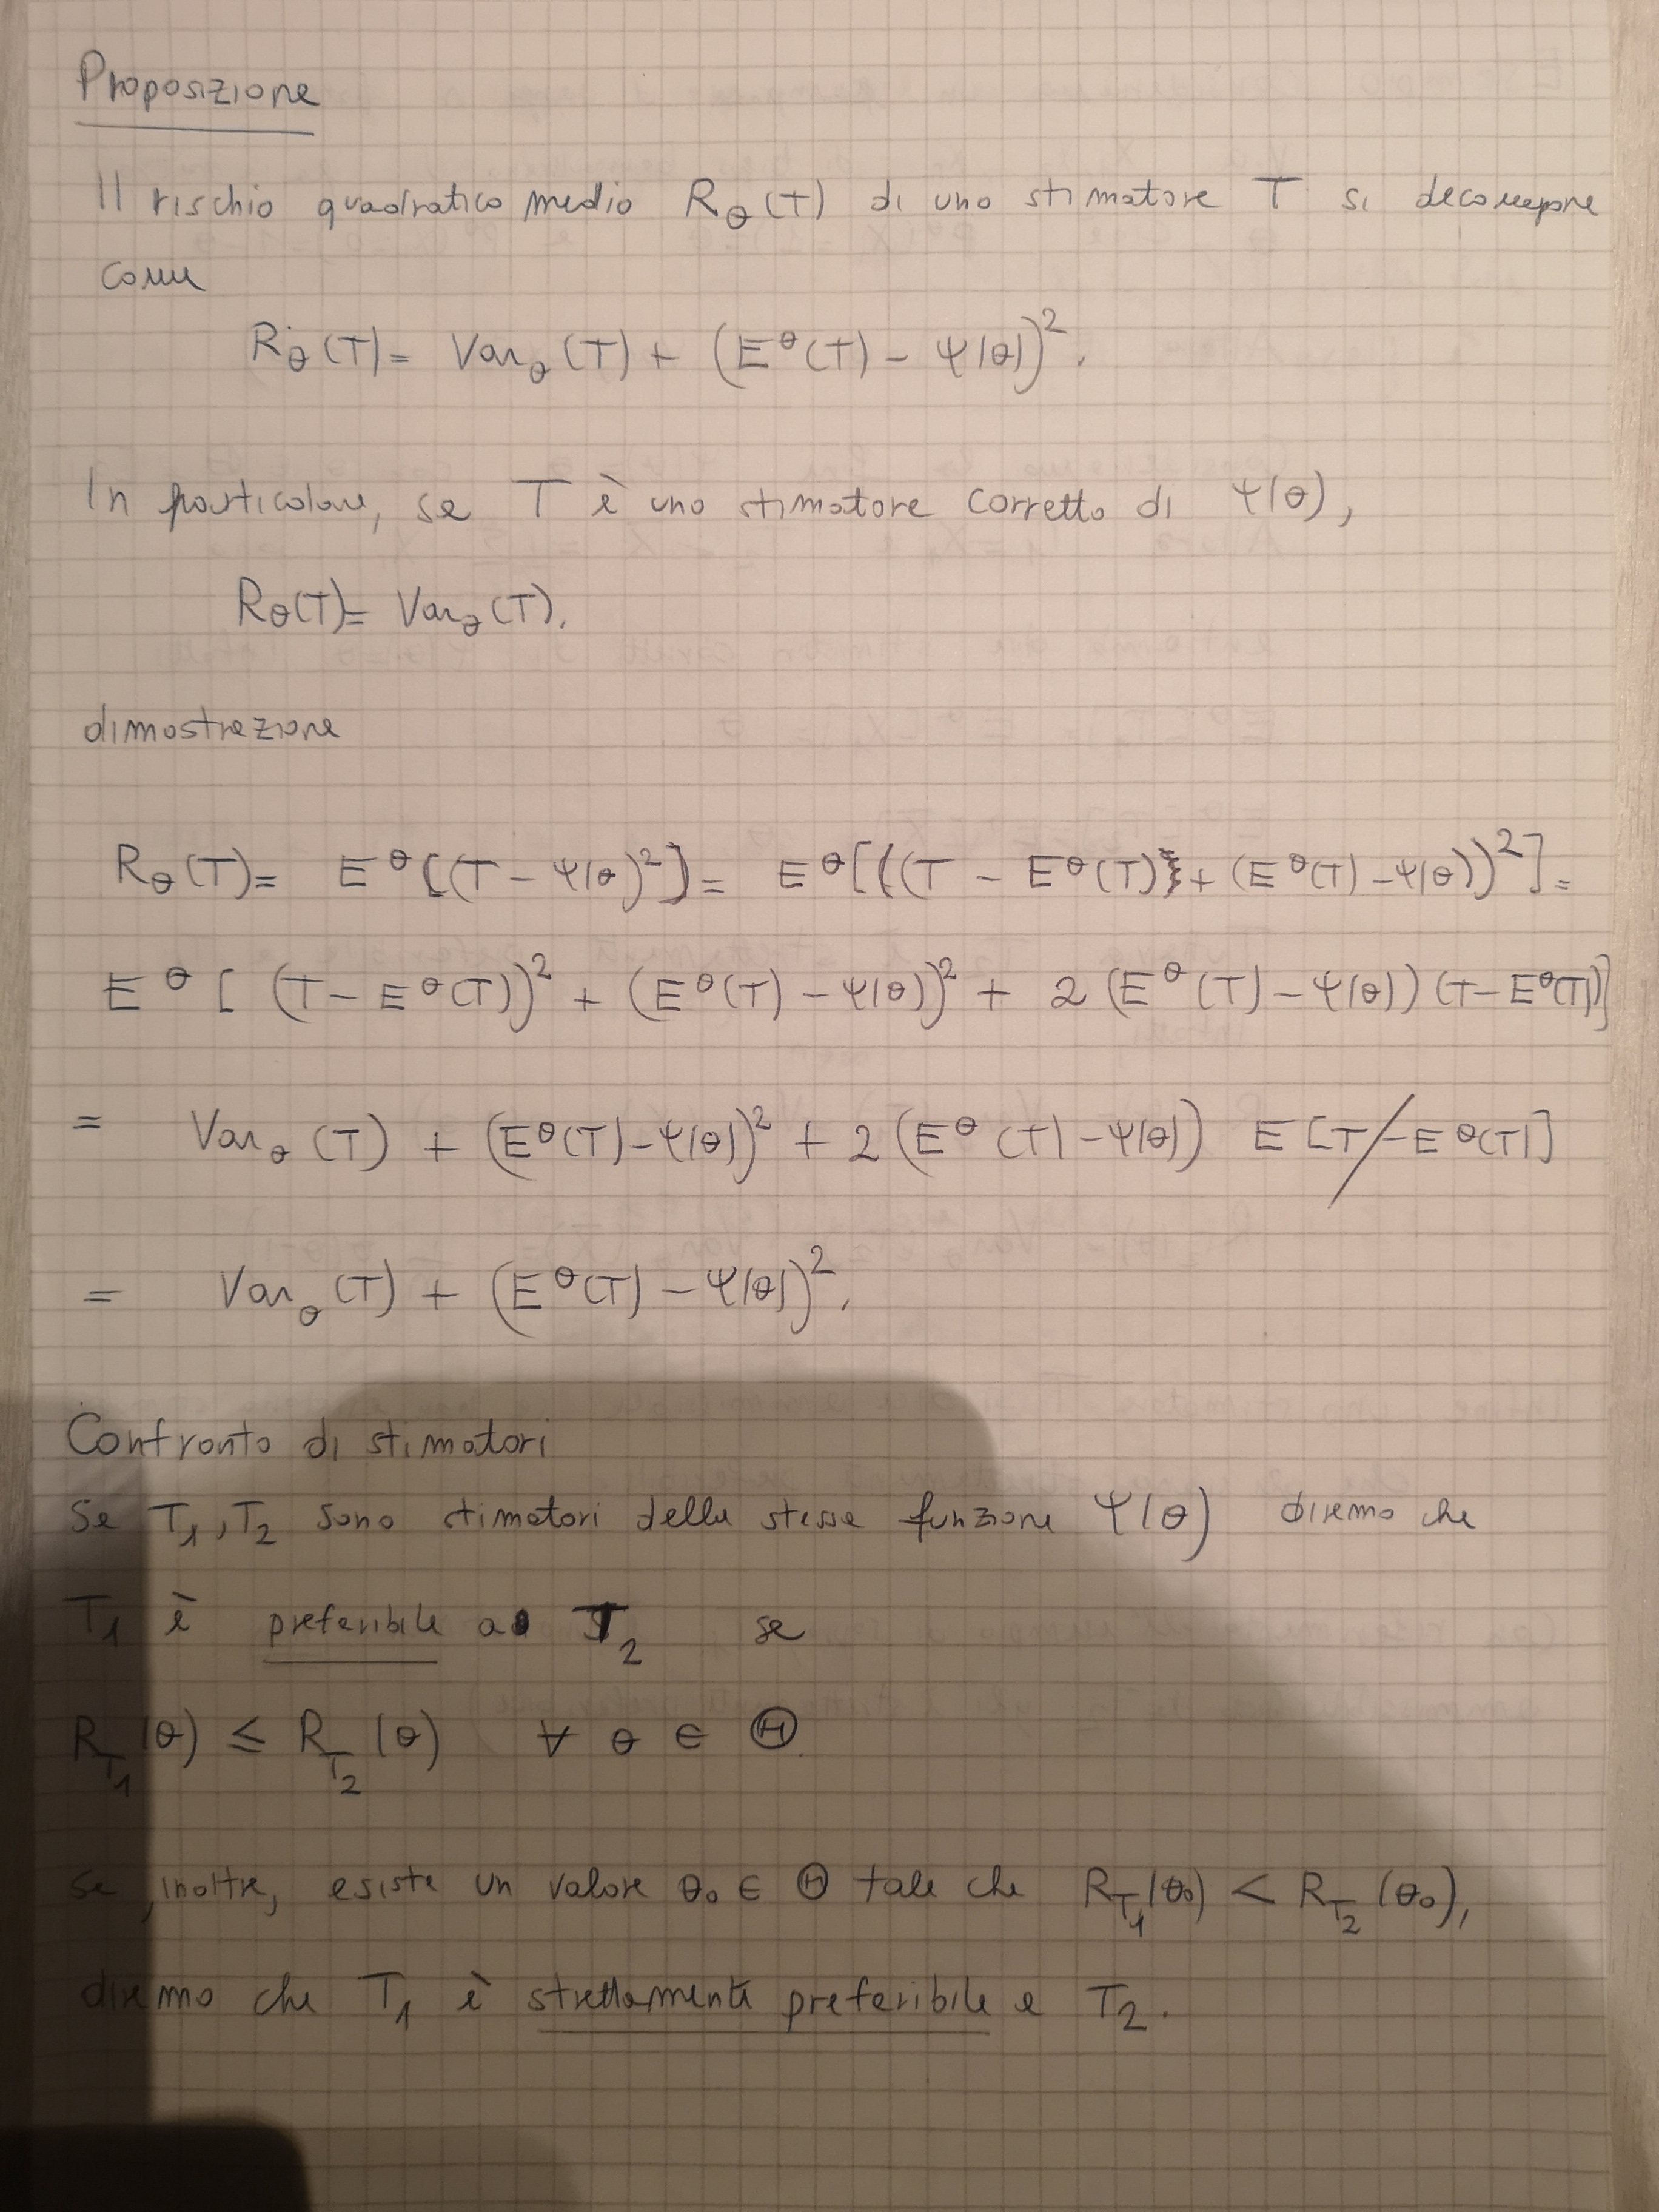 Proposizione
Il rischio quadratico medio R_θ(T) di uno stimatore T si decompone
come
R_θ(T) = Var_θ(T) + (E^θ(T) - Ψ(θ))^2.
In particolare, se T è uno stimatore corretto di Ψ(θ),
R_θ(T) = Var_θ(T).
dimostrazione
R_θ(T) = E^θ[(T - Ψ(θ)^2)] = E^θ[((T - E^θ(T)) + (E^θ(T) - Ψ(θ))^2] =
E^θ[(T - E^θ(T))^2 + (E^θ(T) - Ψ(θ))^2 + 2(E^θ(T) - Ψ(θ))(T - E^θ(T))]
= Var_θ(T) + (E^θ(T) - Ψ(θ))^2 + 2(E^θ(T) - Ψ(θ)) E[T - E^θ(T)]
= Var_θ(T) + (E^θ(T) - Ψ(θ))^2.
Confronto di stimatori
Se T_1, T_2 sono stimatori della stessa funzione Ψ(θ) diremo che
T_1 è preferibile a T_2 se
R_{T_1}(θ) ≤ R_{T_2}(θ) ∀ θ ∈ Θ.
se, inoltre, esiste un valore θ_0 ∈ Θ tale che R_{T_1}(θ_0) < R_{T_2}(θ_0),
diremo che T_1 è strettamente preferibile a T_2.